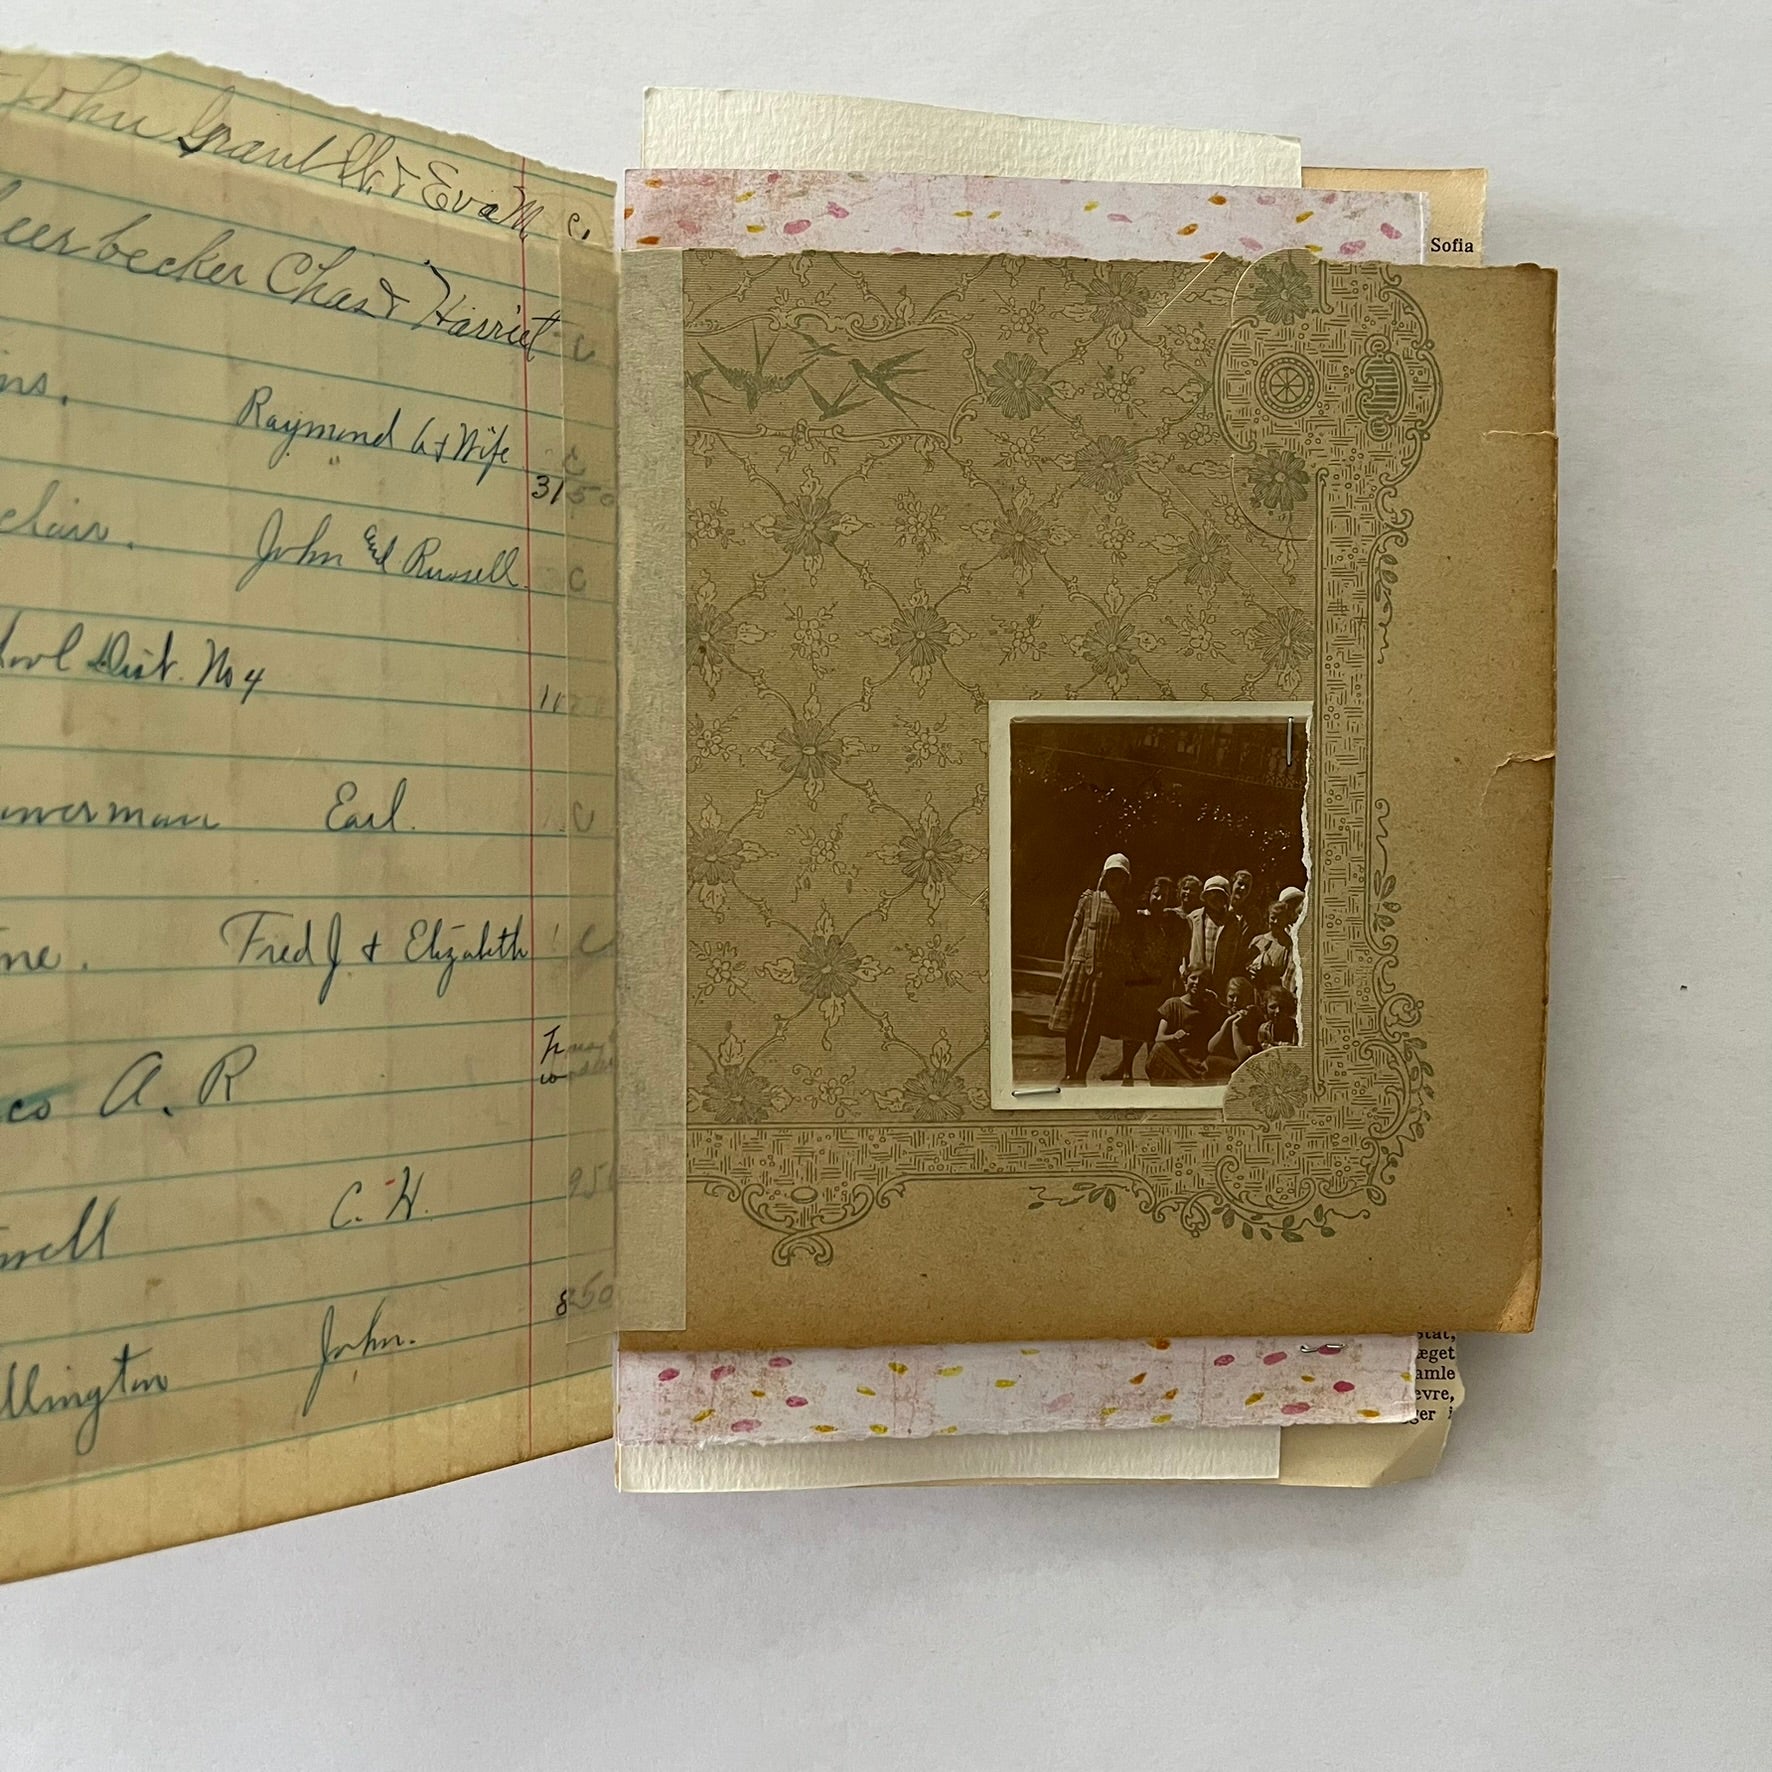 John Grant & Eva M. C.
eerbecker Chas & Harriet C
ns. Raymond G & Wife C
3150
clair. John and Russell. C
ool Dist. No 4
merman Earl. C
ne. Fred J. & Elizabeth C
co A. R
well C. H. 950
850
llington John.
Sofia
Stat,
æget
amle
evre,
ger i